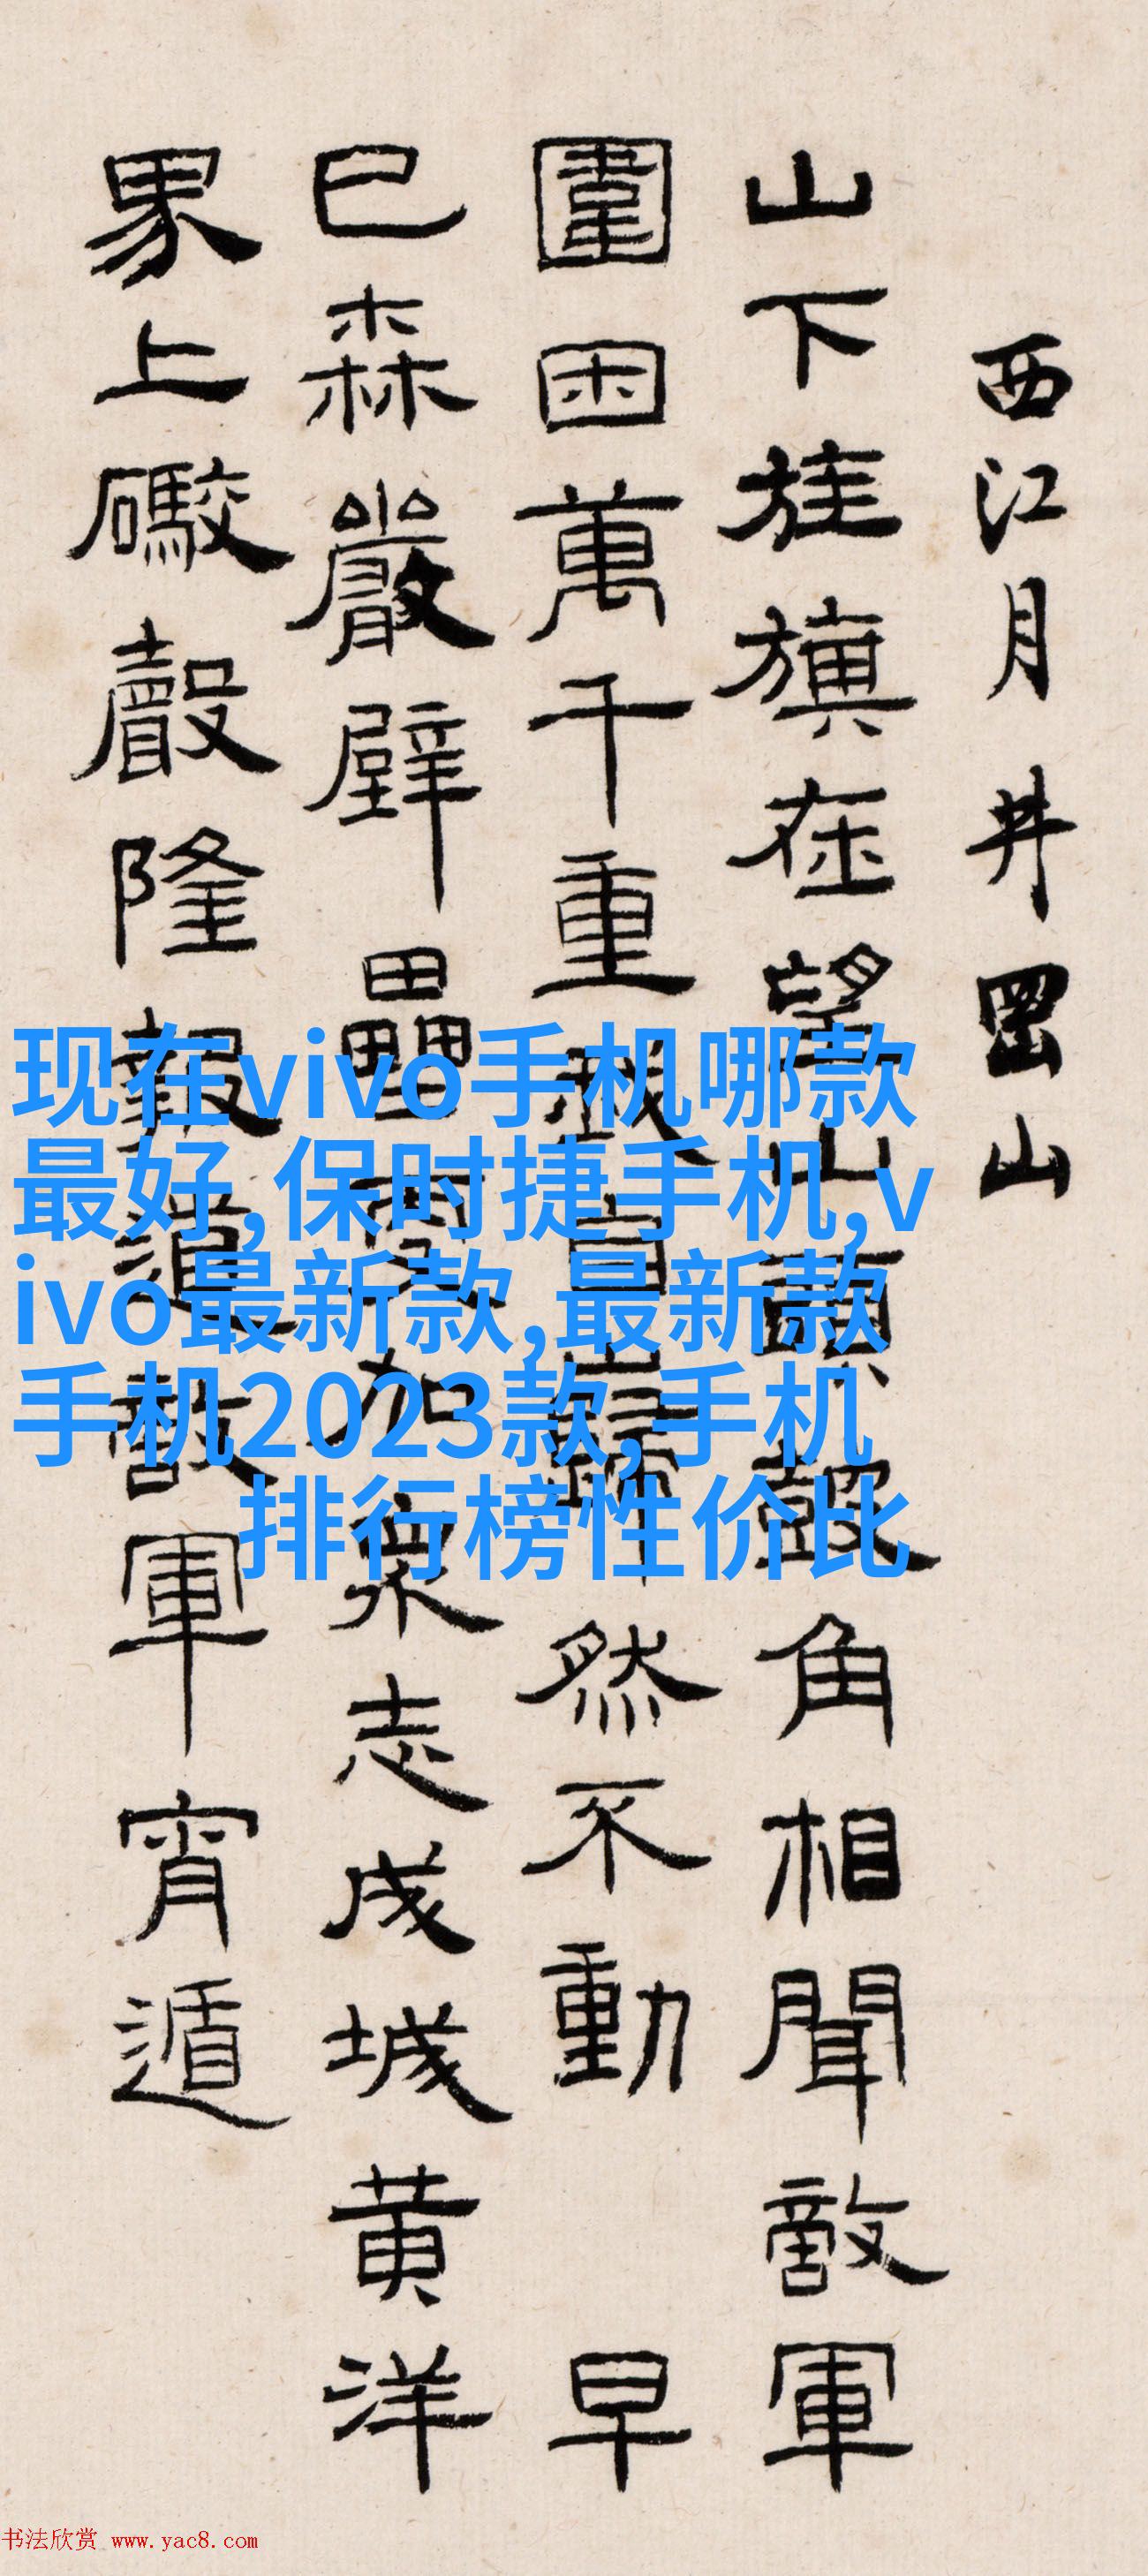 西江月 井罡山
山下旌旗在望山頭鼓角相聞敵軍
圍困萬千重我自巋然不動 早
已森嚴壁壘更加衆志成城黄洋
界上礮聲隆報道敵軍宵遁
现在vivo手机哪款
最好,保时捷手机,v
ivo最新款,最新款
手机2023款,手机
排行榜性价比
书法欣赏 www.yac8.com